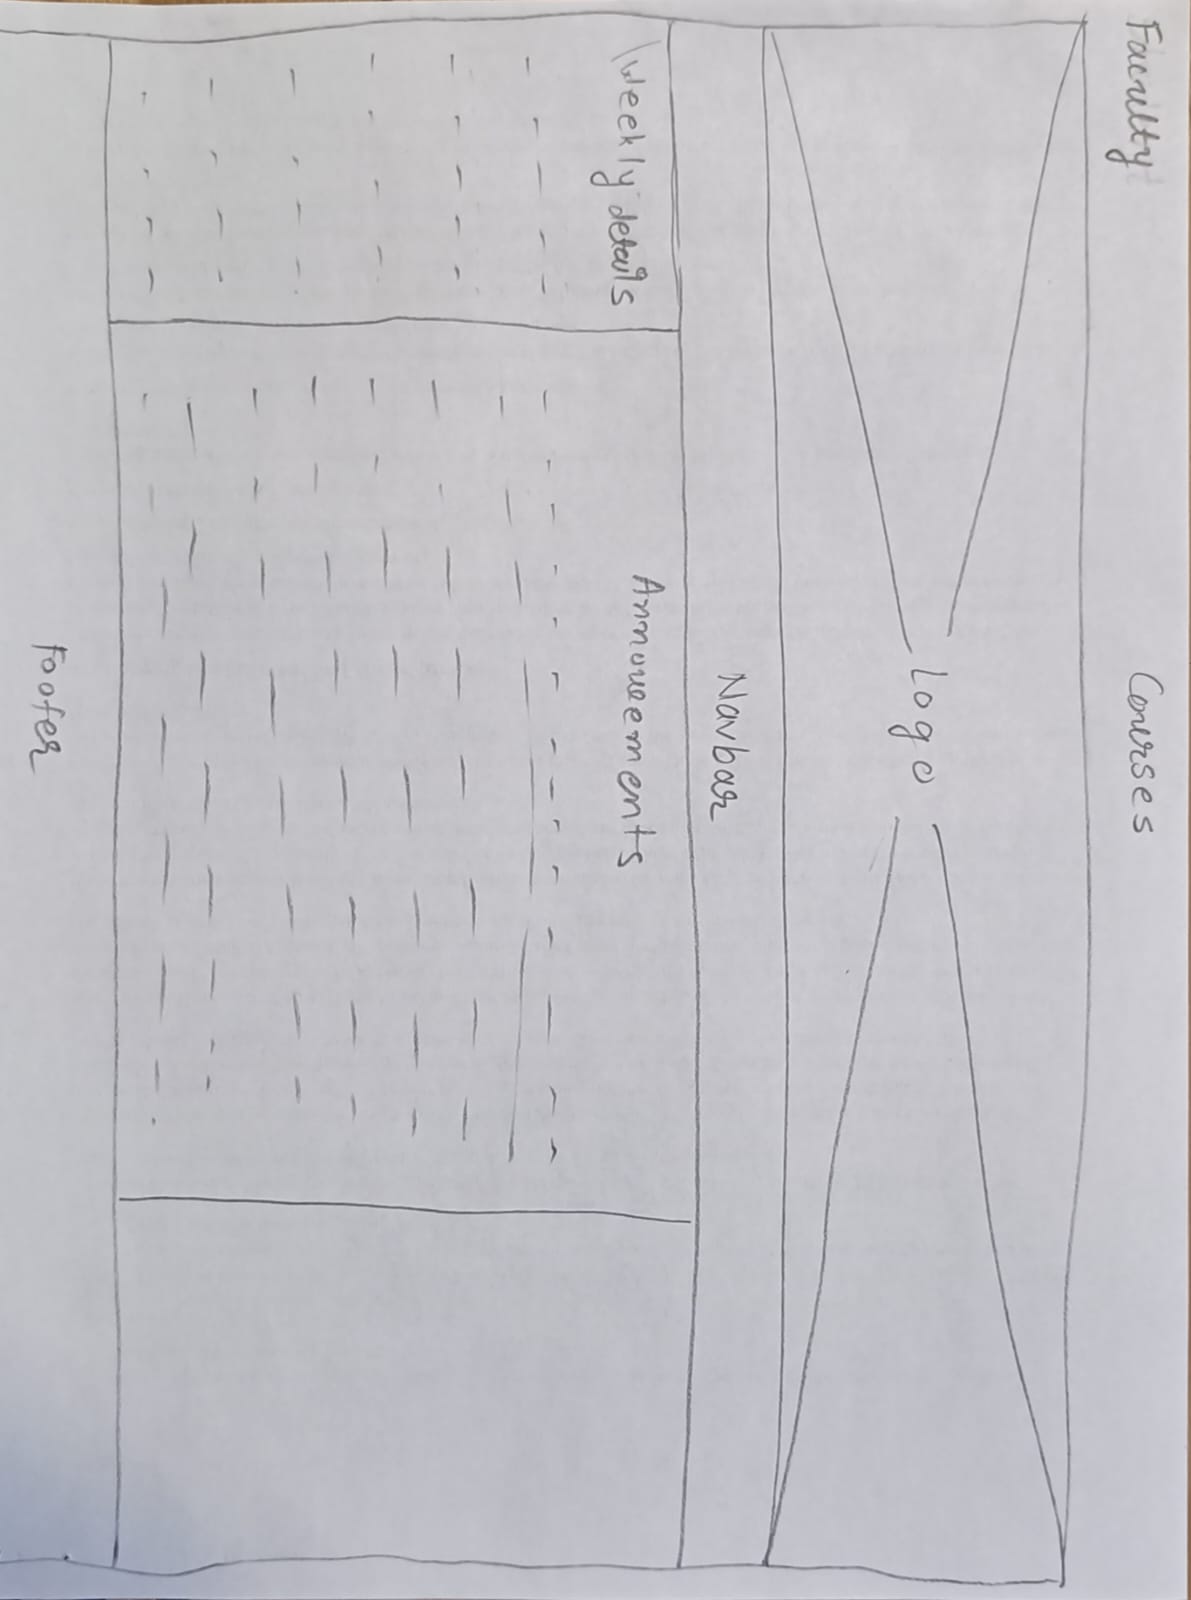 Faculty
Courses
Logo
Navbar
Weekly details
Annoucements
Footer